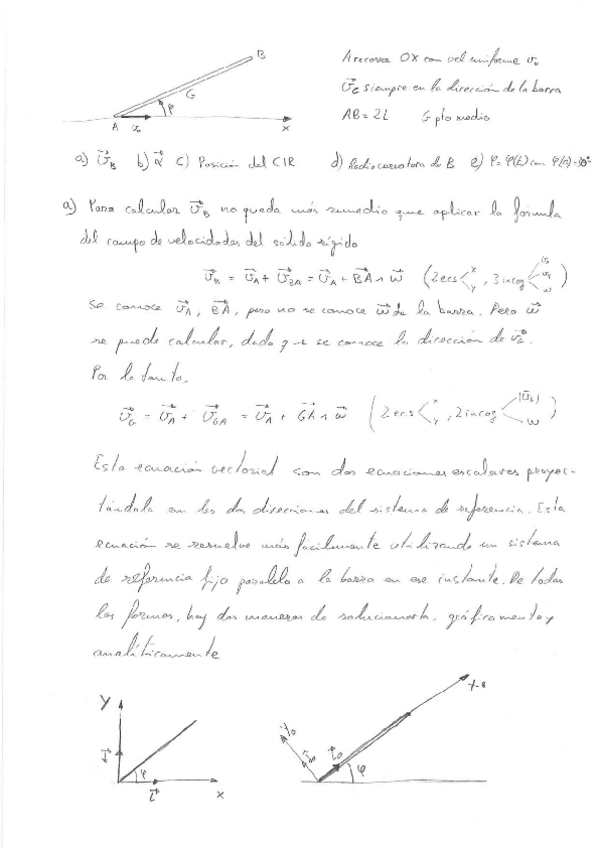 B
G
φ
A
v₀
x
A recorre OX con vel uniforme v₀
v⃗G siempre en la dirección de la barra
AB = 2L G pto medio
a) v⃗B b) α⃗ c) Posición del CIR d) Radio curvatura de B e) φ = φ(t) con φ(0)=30º
a) Para calcular v⃗B no queda más remedio que aplicar la fórmula
del campo de velocidades del sólido rígido
v⃗B = v⃗A + v⃗BA = v⃗A + B⃗A ∧ ω⃗ (2 ecs < x y, 3 incog < vy ω)
se conoce v⃗A, B⃗A, pero no se conoce ω⃗ de la barra. Pero ω⃗
se puede calcular, dado que se conoce la dirección de v⃗G.
Por lo tanto,
v⃗G = v⃗A + v⃗GA = v⃗A + G⃗A ∧ ω⃗ (2 ecs < x y, 2 incog < |v⃗G| ω)
Esta ecuación vectorial son dos ecuaciones escalares proyec-
tándola en las dos direcciones del sistema de referencia. Esta
ecuación se resuelve más fácilmente utilizando un sistema
de referencia fijo paralelo a la barra en ese instante. De todas
las formas, hay dos maneras de solucionarla, gráficamente y
analíticamente
Y
j⃗
φ
i⃗
x
φ